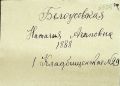 Белоусовская
Наталия Агаповна
1888
1 Кладбищенская №19